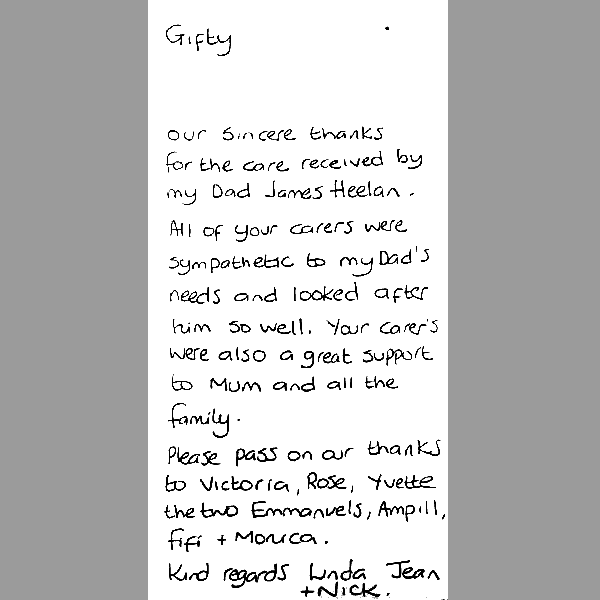 Gifty
our sincere thanks
for the care received by
my Dad James Heelan.
All of your carers were
sympathetic to my Dad's
needs and looked after
him so well. Your carer's
were also a great support
to Mum and all the
family.
Please pass on our thanks
to Victoria, Rose, Yvette
the two Emmanuels, Ampill,
fifi + Monica.
Kind regards Linda Jean
+ Nick.